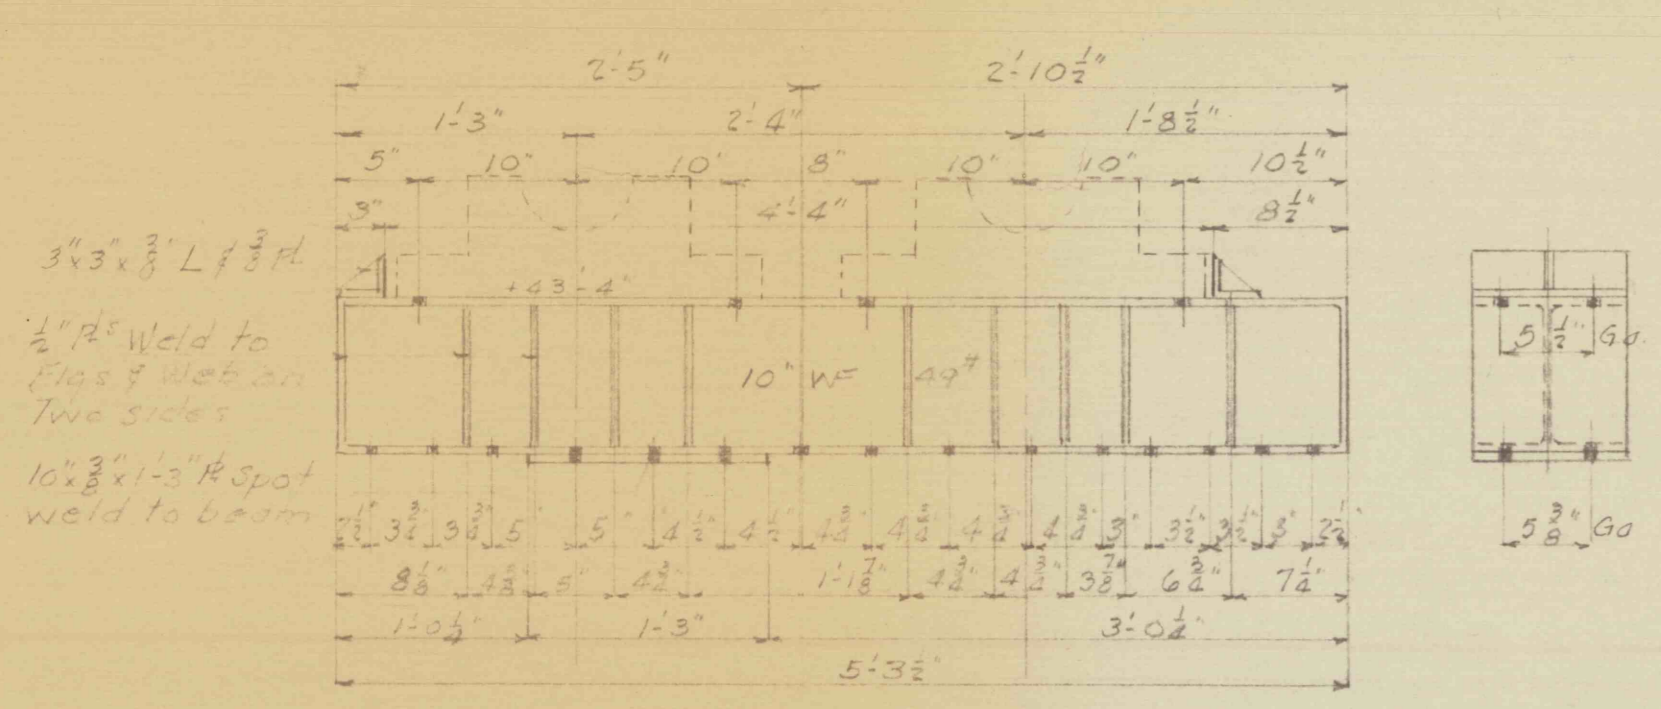 2'-5" 2'-10 1/2"
1'-3" 2'-4" 1'-8 1/2"
5" 10" 10' 8" 10" 10" 10 1/2"
3" 4'-4" 8 1/2"
3"x3"x 3/8" L & 3/8 PL
+43'-4"
1/2" PLs Weld to
Flgs & Web on
Two sides
10" WF 49#
5 1/2" Ga.
10"x 3/8"x1'-3" PL Spot
weld to beam
2 1/2" 3 3/4" 3 3/4" 5" 5" 4 1/2" 4 1/2" 4 3/4" 4 3/4" 4 3/4" 4 3/4" 3" 3 1/2" 3 1/4" 3" 2 1/2"
5 3/8" Ga
8 1/8" 4 3/8" 5" 4 3/4" 1'-1 7/8" 4 3/4" 4 3/4" 3 7/8" 6 3/4" 7 1/4"
1'-0 1/4" 1'-3" 3'-0 1/4"
5'-3 1/2"